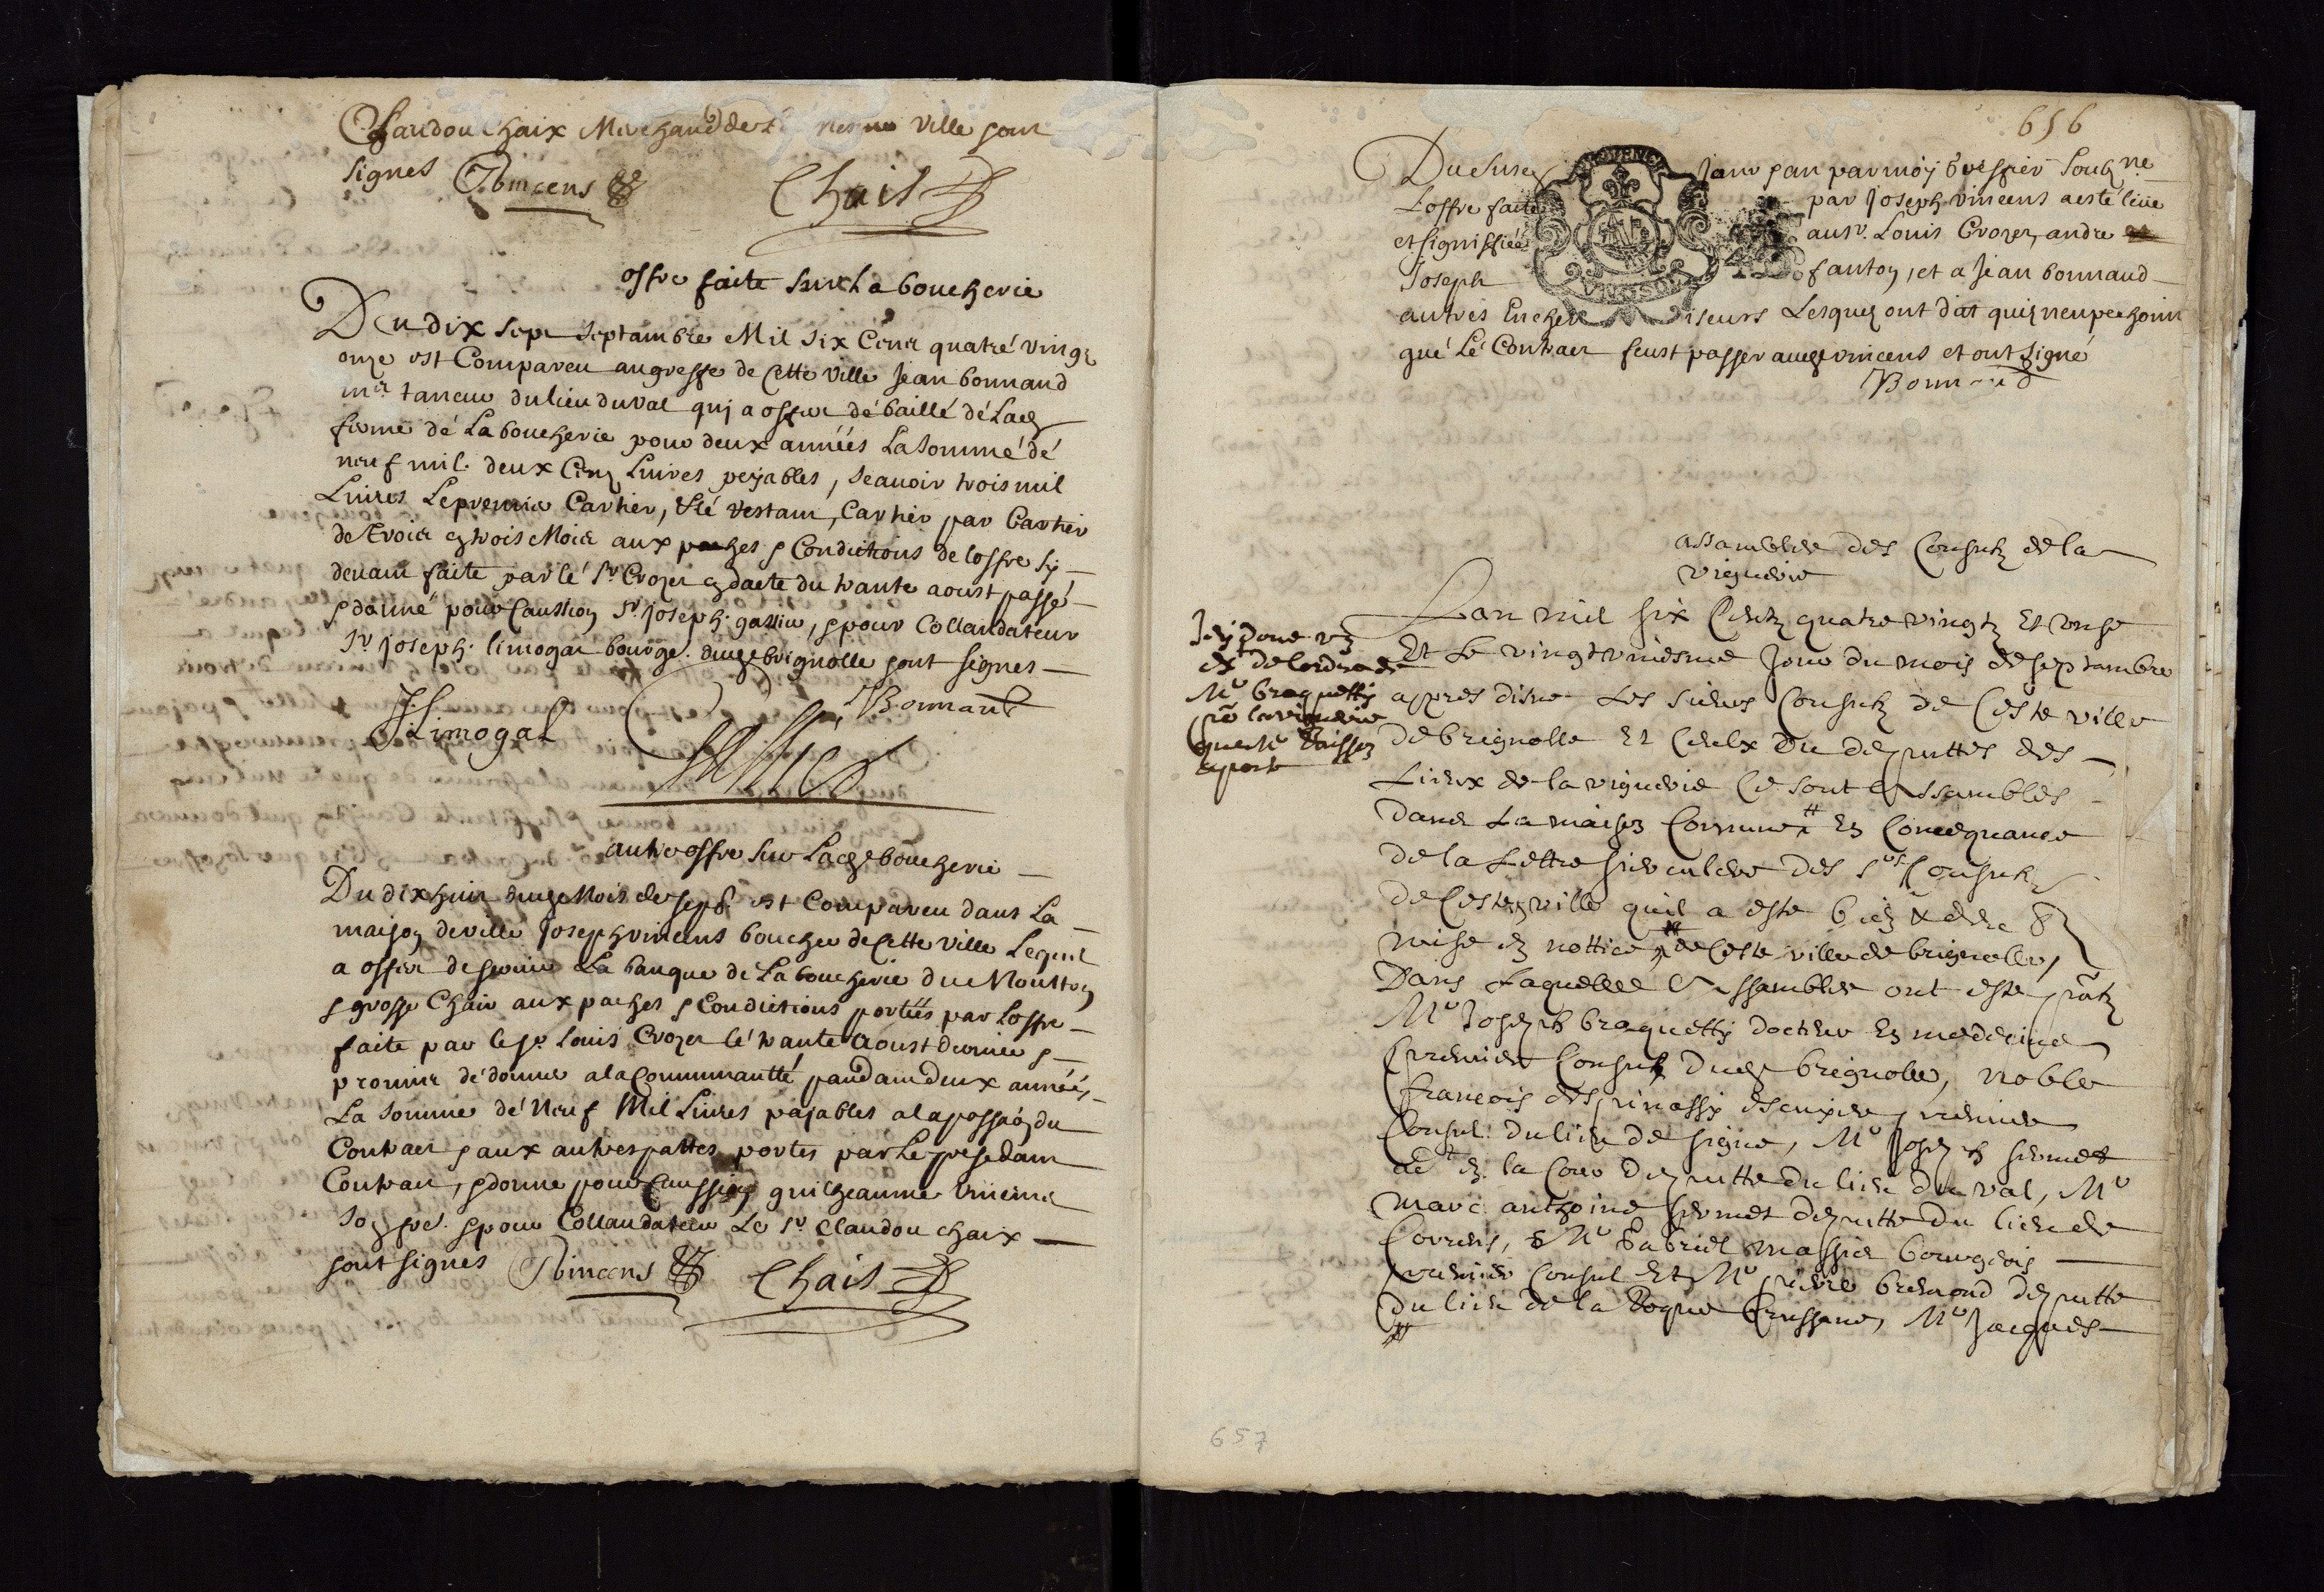 Claudou Chaix Merchand de ville sont
signes J Vincens Chais
offre faite sur La boucherie
Du dix sept septambre Mil six Cent quatré vingt
onze est Compareu au greffe de Cette ville Jean bonnaud
mr tanneur du lieu du val quj a offert dé baillé dé Lad
ferme dé La boucherie pour deux années La sommé dé
neuf mil deux Cens Liures peyables, scauoir trois mil
Liures Le premier Cartier, & lé restant, Cartier par Cartier
de trois en trois Mois aux paches & Condictions de loffre sy
deuant faite par lé Sr Crozer en datte du trante aoust passé
& donné pour Caustion Sr Joseph gassier, & pour Collaudateur
Sr Joseph limogat bourge. dud brignolle sont signes
J Limogat Bonnaud
autre offre sur Lad boucherie
Du dix huit dud Mois de sepbr est Compareu dans La
maison de ville Joseph vincens boucher de Cette ville Lequel
a offert de seruir La banque de La boucherie du Moutton
& grosse Chair aux paches & Condictions portées par Loffre
faite par le Sr Louis Crozer lé trante Aoust dernier &
promis dé donner a la Communautté pandant deux années
La somme dé Neuf Mil Liures payables a la passaon du
Contract & aux autres pattes portes par Le presedant
Contract, & donne pour Caussion guilheaume Vincens
son pe. & pour Collaudateur Le Sr Claudou Chaix
sont signes J Vincens Chais
656
Du susd Jour & an par moy greffier soubzne
Loffre faite par Joseph vincens a esté leüe
et signiffiée au sr. Louis Crozer, andre
Joseph fanton, et a Jean bonnaud
autres Encherisseurs Lesquez ont dit quiz neupechoint
qué Lé Contract feust passer auec vincens et ont signé
Bonnaud
assamblee des Consulz de la
viguerie
Lan mil six Centz quatre vingtz Et onse
Et Le vingt uniesme Jour du mois de septambre
appres disne Les sieurs Consulz de Ceste ville
de brignolle Et Ceulx ou deputtes des
Lieux de la viguerie Ce sont Assambles
dans La maison Commune En Consequance
de la Lettre sirculere des Srs Consulz
de Ceste ville quil a este
mise en nottice de Ceste ville de brignolle,
Dans Laquelle Assamblee ont este pntz
Me Joseph braquetty docteur En medecine
premier Consul dud brignolle, noble
francois despinassy escuyer premier
Consul du lieu de signe, Me Joseph sermet
en la Cour deputte du lieu du val, Me
marc anthoine sermet deputte du lieu de
Correns, Me gabriel massie bourgeois
premier Consul Et Me pierre bremond deputte
du lieu de la Roque brussane, Me Jacques
Jey donne vn
ext de lordre de
Me braquetty
pr la viguerie
657